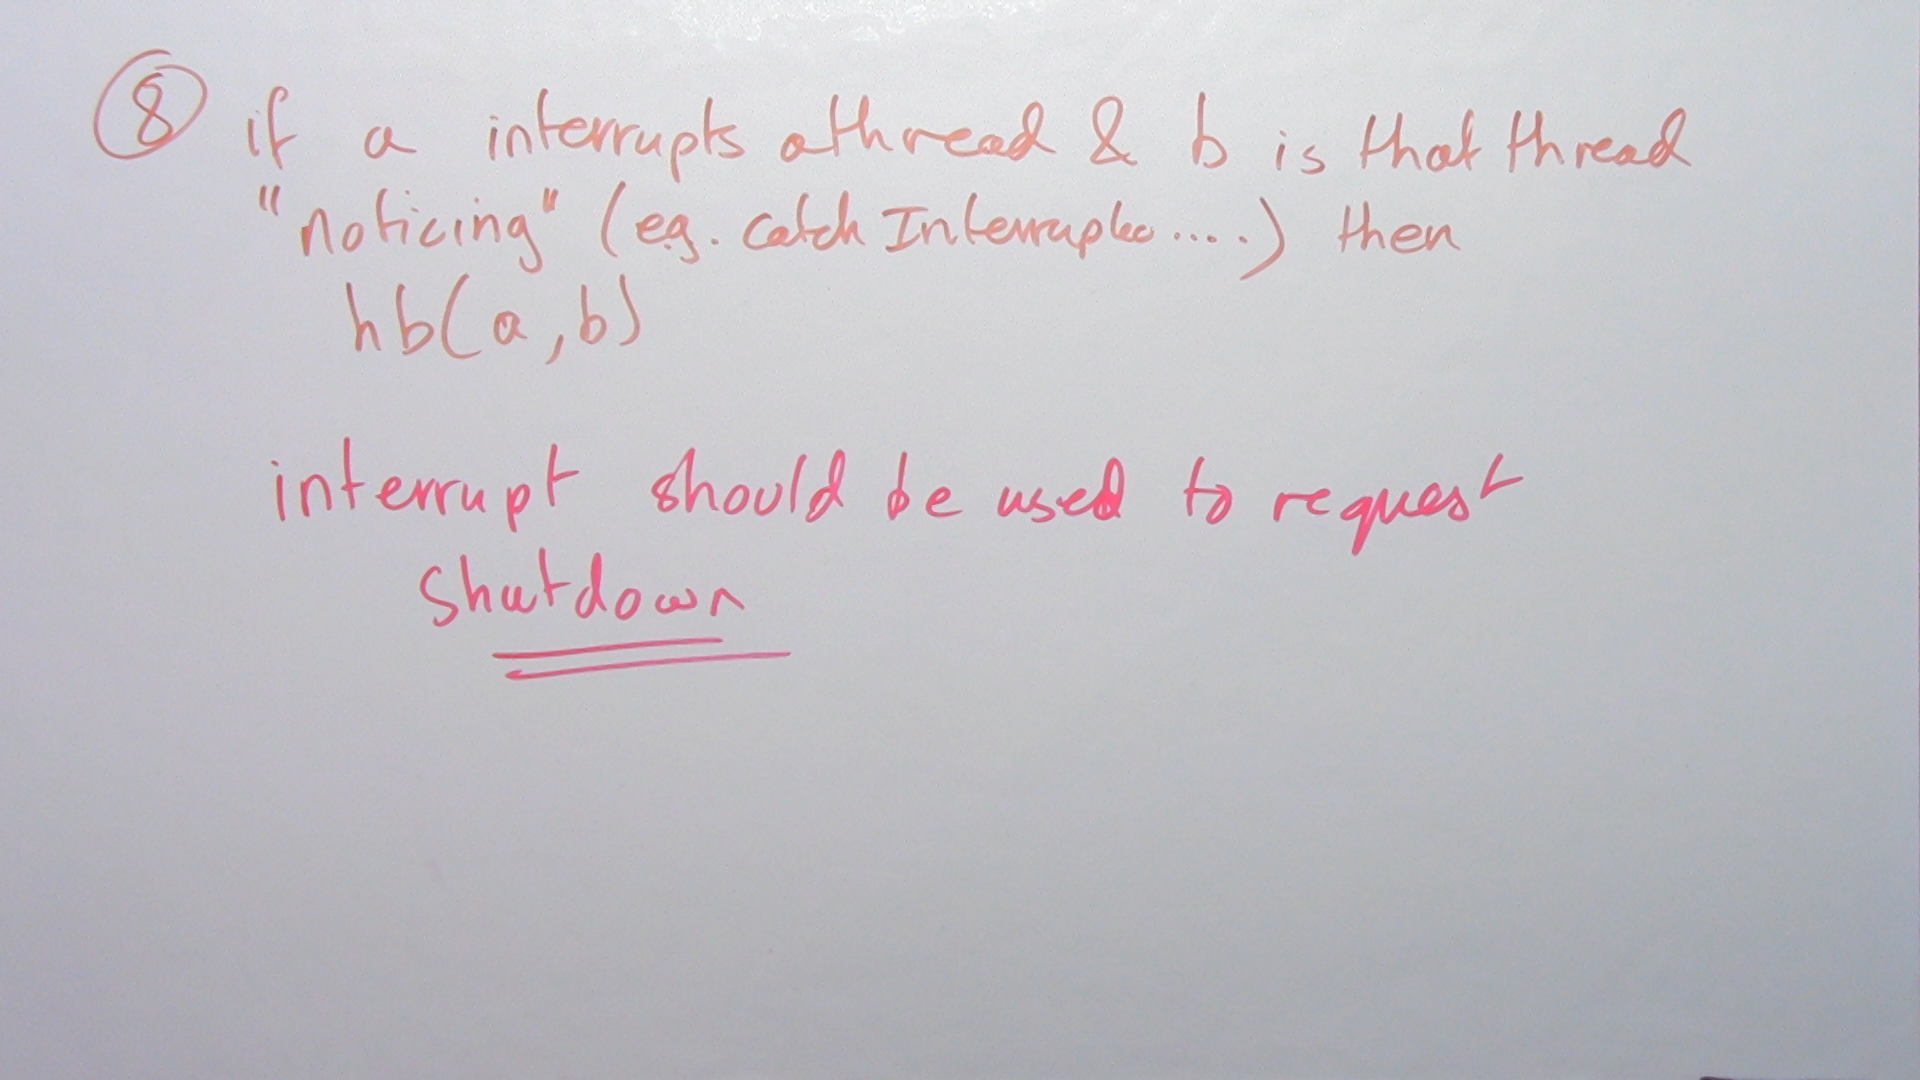 8 if a interrupts a thread & b is that thread
"noticing" (eg. catch Interrupte....) then
hb(a,b)
interrupt should be used to request
shutdown